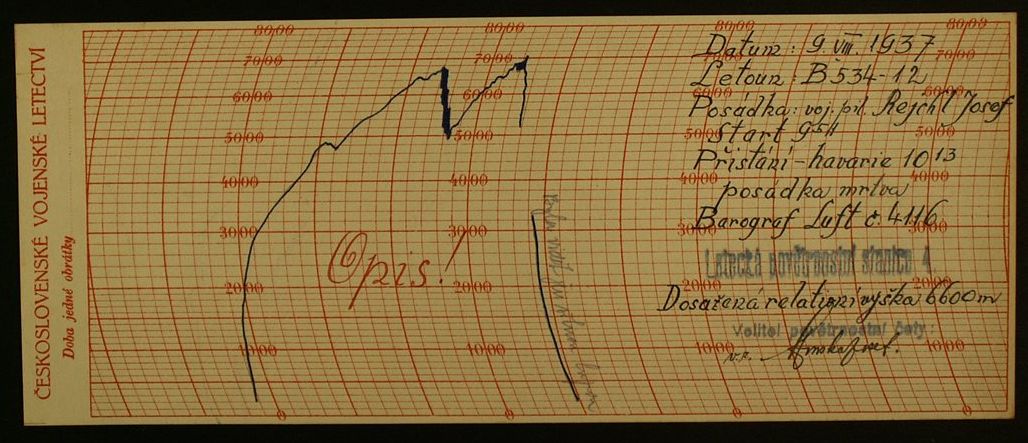 ČESKOSLOVENSKÉ VOJENSKÉ LETECTVÍ
Doba jedné obrátky
80,00 80,00 80,00 80,00
70,00 70,00 70,00 70,00
60,00 60,00 60,00
50,00 50,00 50,00 50,00
40,00 40,00 40,00 40,00
30,00 30,00 30,00 30,00
20,00 20,00
10,00 10,00 10,00 10,00
0 0 0 0
Opis!
Datum: 9.VIII.1937
Letoun: B534-12
Posádka: voj. pil. Rejchl Josef
Start 9⁵⁴
Přistání - havarie 10¹³
posádka mrtva
Barograf Luft č. 4116
Letecká povětrnostní stanice 4.
Dosažená relativní výška 6600m
Velitel povětrnostní čety:
v.r.